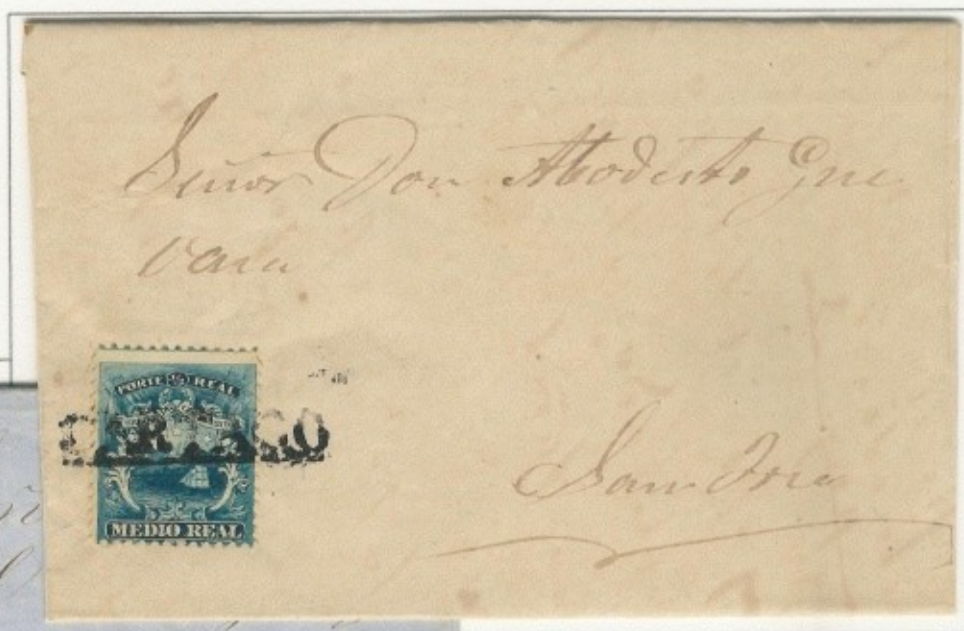 Señor Don Modesto Gue
vara
PORTE ½ REAL
CARTAGO
MEDIO REAL
San José